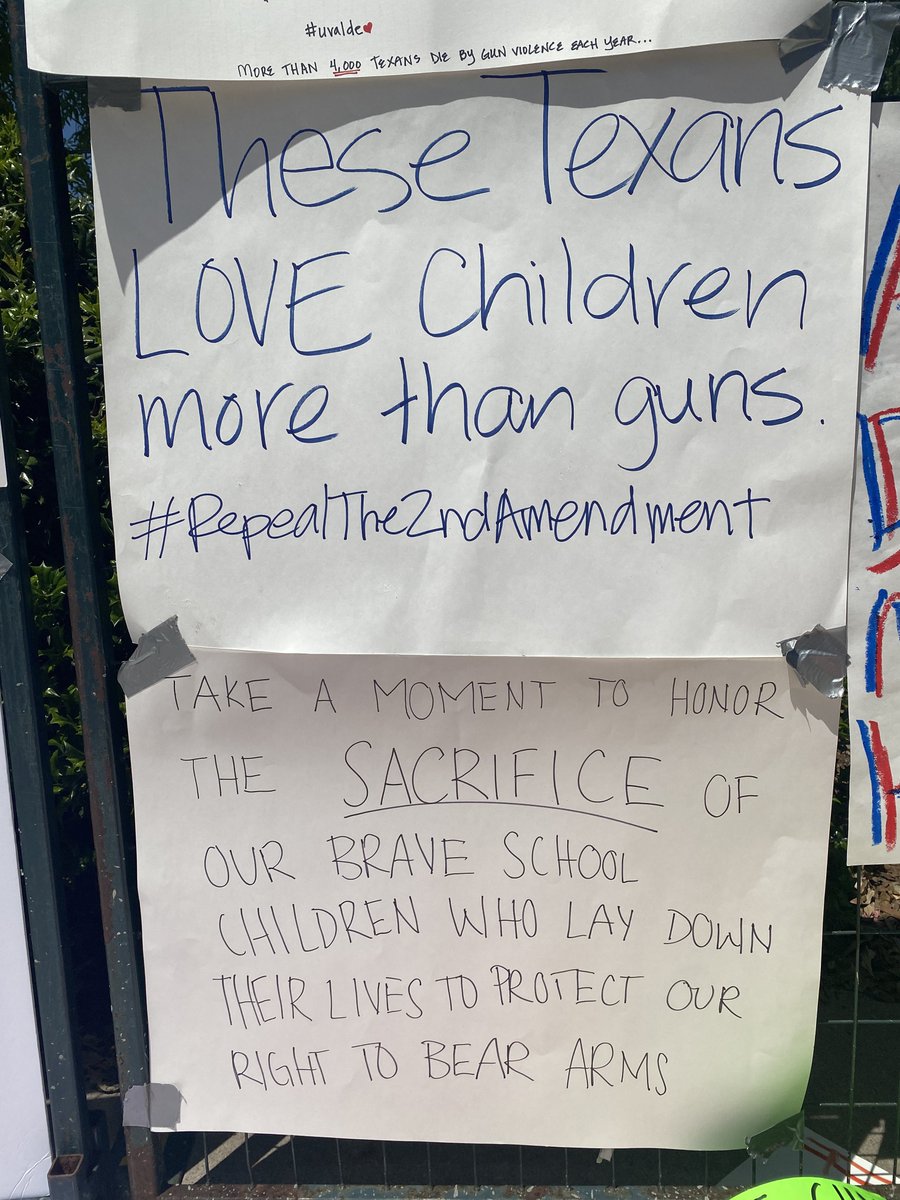 #uvalde♥
MORE THAN 4,000 TEXANS DIE BY GUN VIOLENCE EACH YEAR...
These Texans
LOVE Children
more than guns.
#RepealThe2ndAmendment
TAKE A MOMENT TO HONOR
THE SACRIFICE OF
OUR BRAVE SCHOOL
CHILDREN WHO LAY DOWN
THEIR LIVES TO PROTECT OUR
RIGHT TO BEAR ARMS